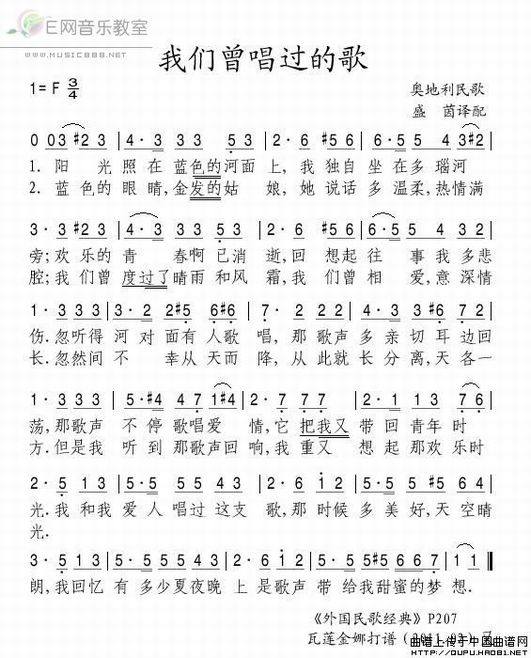 E网音乐教室
WWW.MUSIC888.NET
我们曾唱过的歌
1=F 3/4
奥地利民歌
盛 茵译配
0 03 #2 3 | 4· 3 3 3 5 3 | 2· 6 #5 6 | 6·5 5 4 3#2 |
1. 阳 光 照 在 蓝色的河面 上, 我 独自 坐 在 多 瑙河
2. 蓝 色 的 眼 睛,金发的姑 娘,她 说话 多 温柔,热情满
3· 3 #2 3 | 4· 3 3 3 5 3 | 2· 6 #5 6 | 6·5 5 4 3 2 |
旁;欢 乐的 青 春啊 已消 逝,回 想起 往 事 我多悲
腔;我 们曾 度过了晴雨 和风 霜,我 们曾 相 爱,意深情
1· 3 3 3 | 3· 2 2 #5 6#6 | 7 7 7 | 4· 3 3 #6 7 2 |
伤.忽听得 河 对面 有人歌 唱,那歌声 多 亲切 耳边回
长.忽然间 不 幸从 天而 降,从此就 长 分离,天 各一
1· 3 3 3 | 5· #4 4 7 1#4 | 2· 7 7 7 | 2· 1 1 3 7 6 |
荡,那歌声 不 停 歌唱爱 情,它 把我又 带 回 青年 时
方.但是我 听 到 那歌声回 响,我 重又 想 起 那欢乐时
2· 5 1 3 | 5· 5 5 5 4 3 | 2· 6 i 2 | 5· 5 5 1 4 3 |
光.我 和我 爱 人 唱过 这支 歌,那 时候 多 美 好,天 空晴
光.
3· 5 1 3 | 5· 5 5 5 4 3 | 2· 6 i 2 | 5 5#5 6 6 6 7 | i i ‖
朗,我回忆 有 多少夏夜晚 上 是歌声 带 给我甜蜜的梦 想.
《外国民歌经典》P207
瓦莲金娜打谱
曲谱上传于中国曲谱网
HTTP://QUPU.HAO81.NET